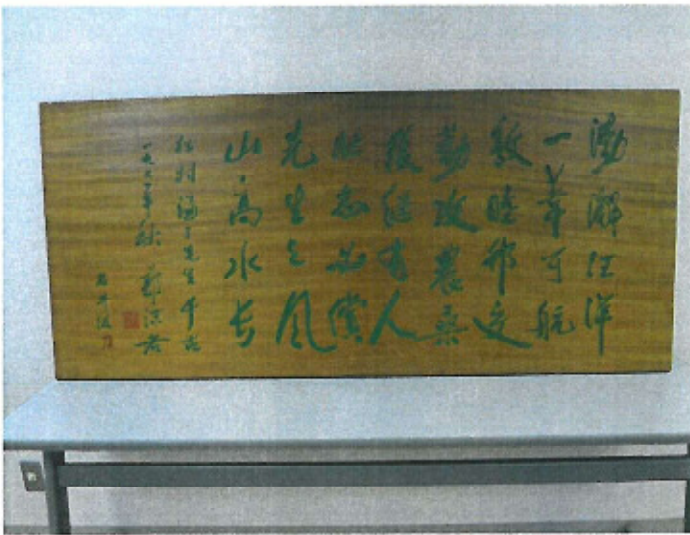 渤澥汪洋
一苇可航
敦睦邦交
勤攻農桑
後继有人
壮志必償
先生之风
山高水长
松村谦三先生千古
一九七一年秋 郭沫若